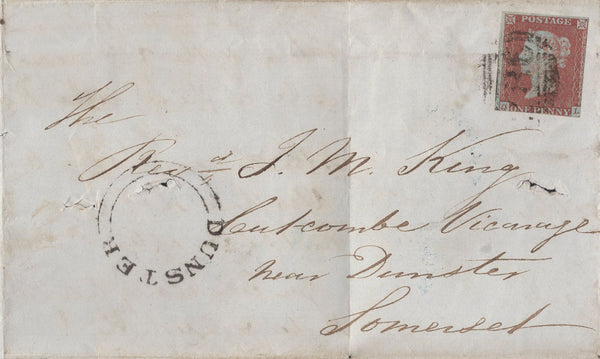 POSTAGE
ONE PENNY
L
The
Revd J. M. King
Cutcombe Vicarage
near Dunster
Somerset
DUNSTER